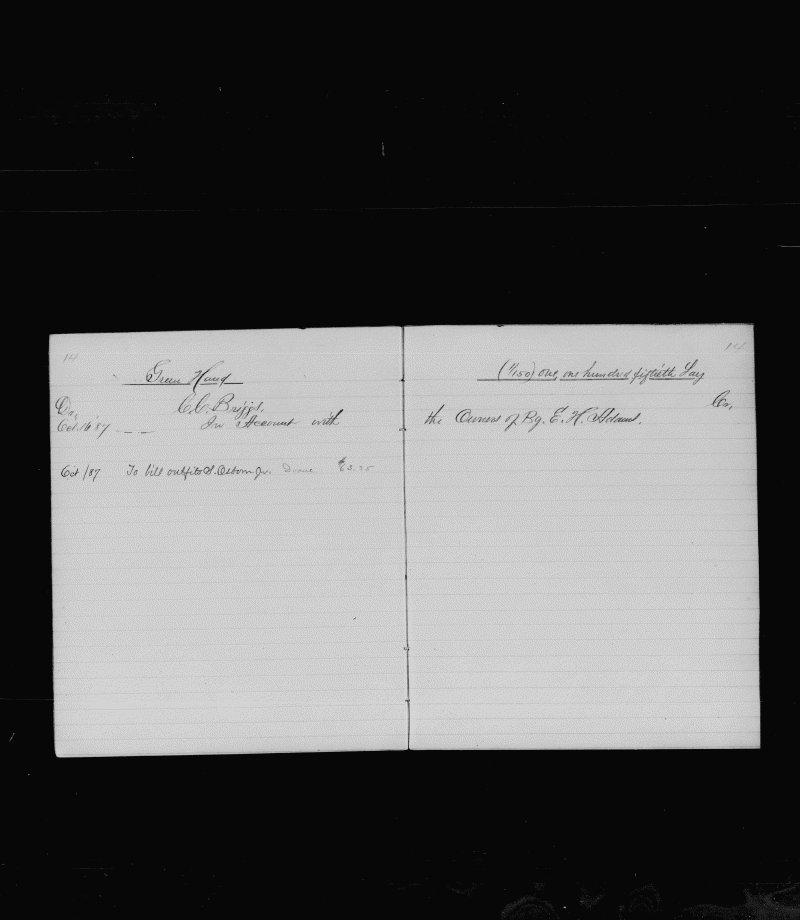 14
Green Hand
Dr,
C. C. Briggs,
Oct. 16 '87
In Account with
Oct /87 To bill outfits S. Osborn Jr.
14
(1/150) one, one hundred fiftieth Lay
Cr,
the Owners of Bg. E. H. Adams.